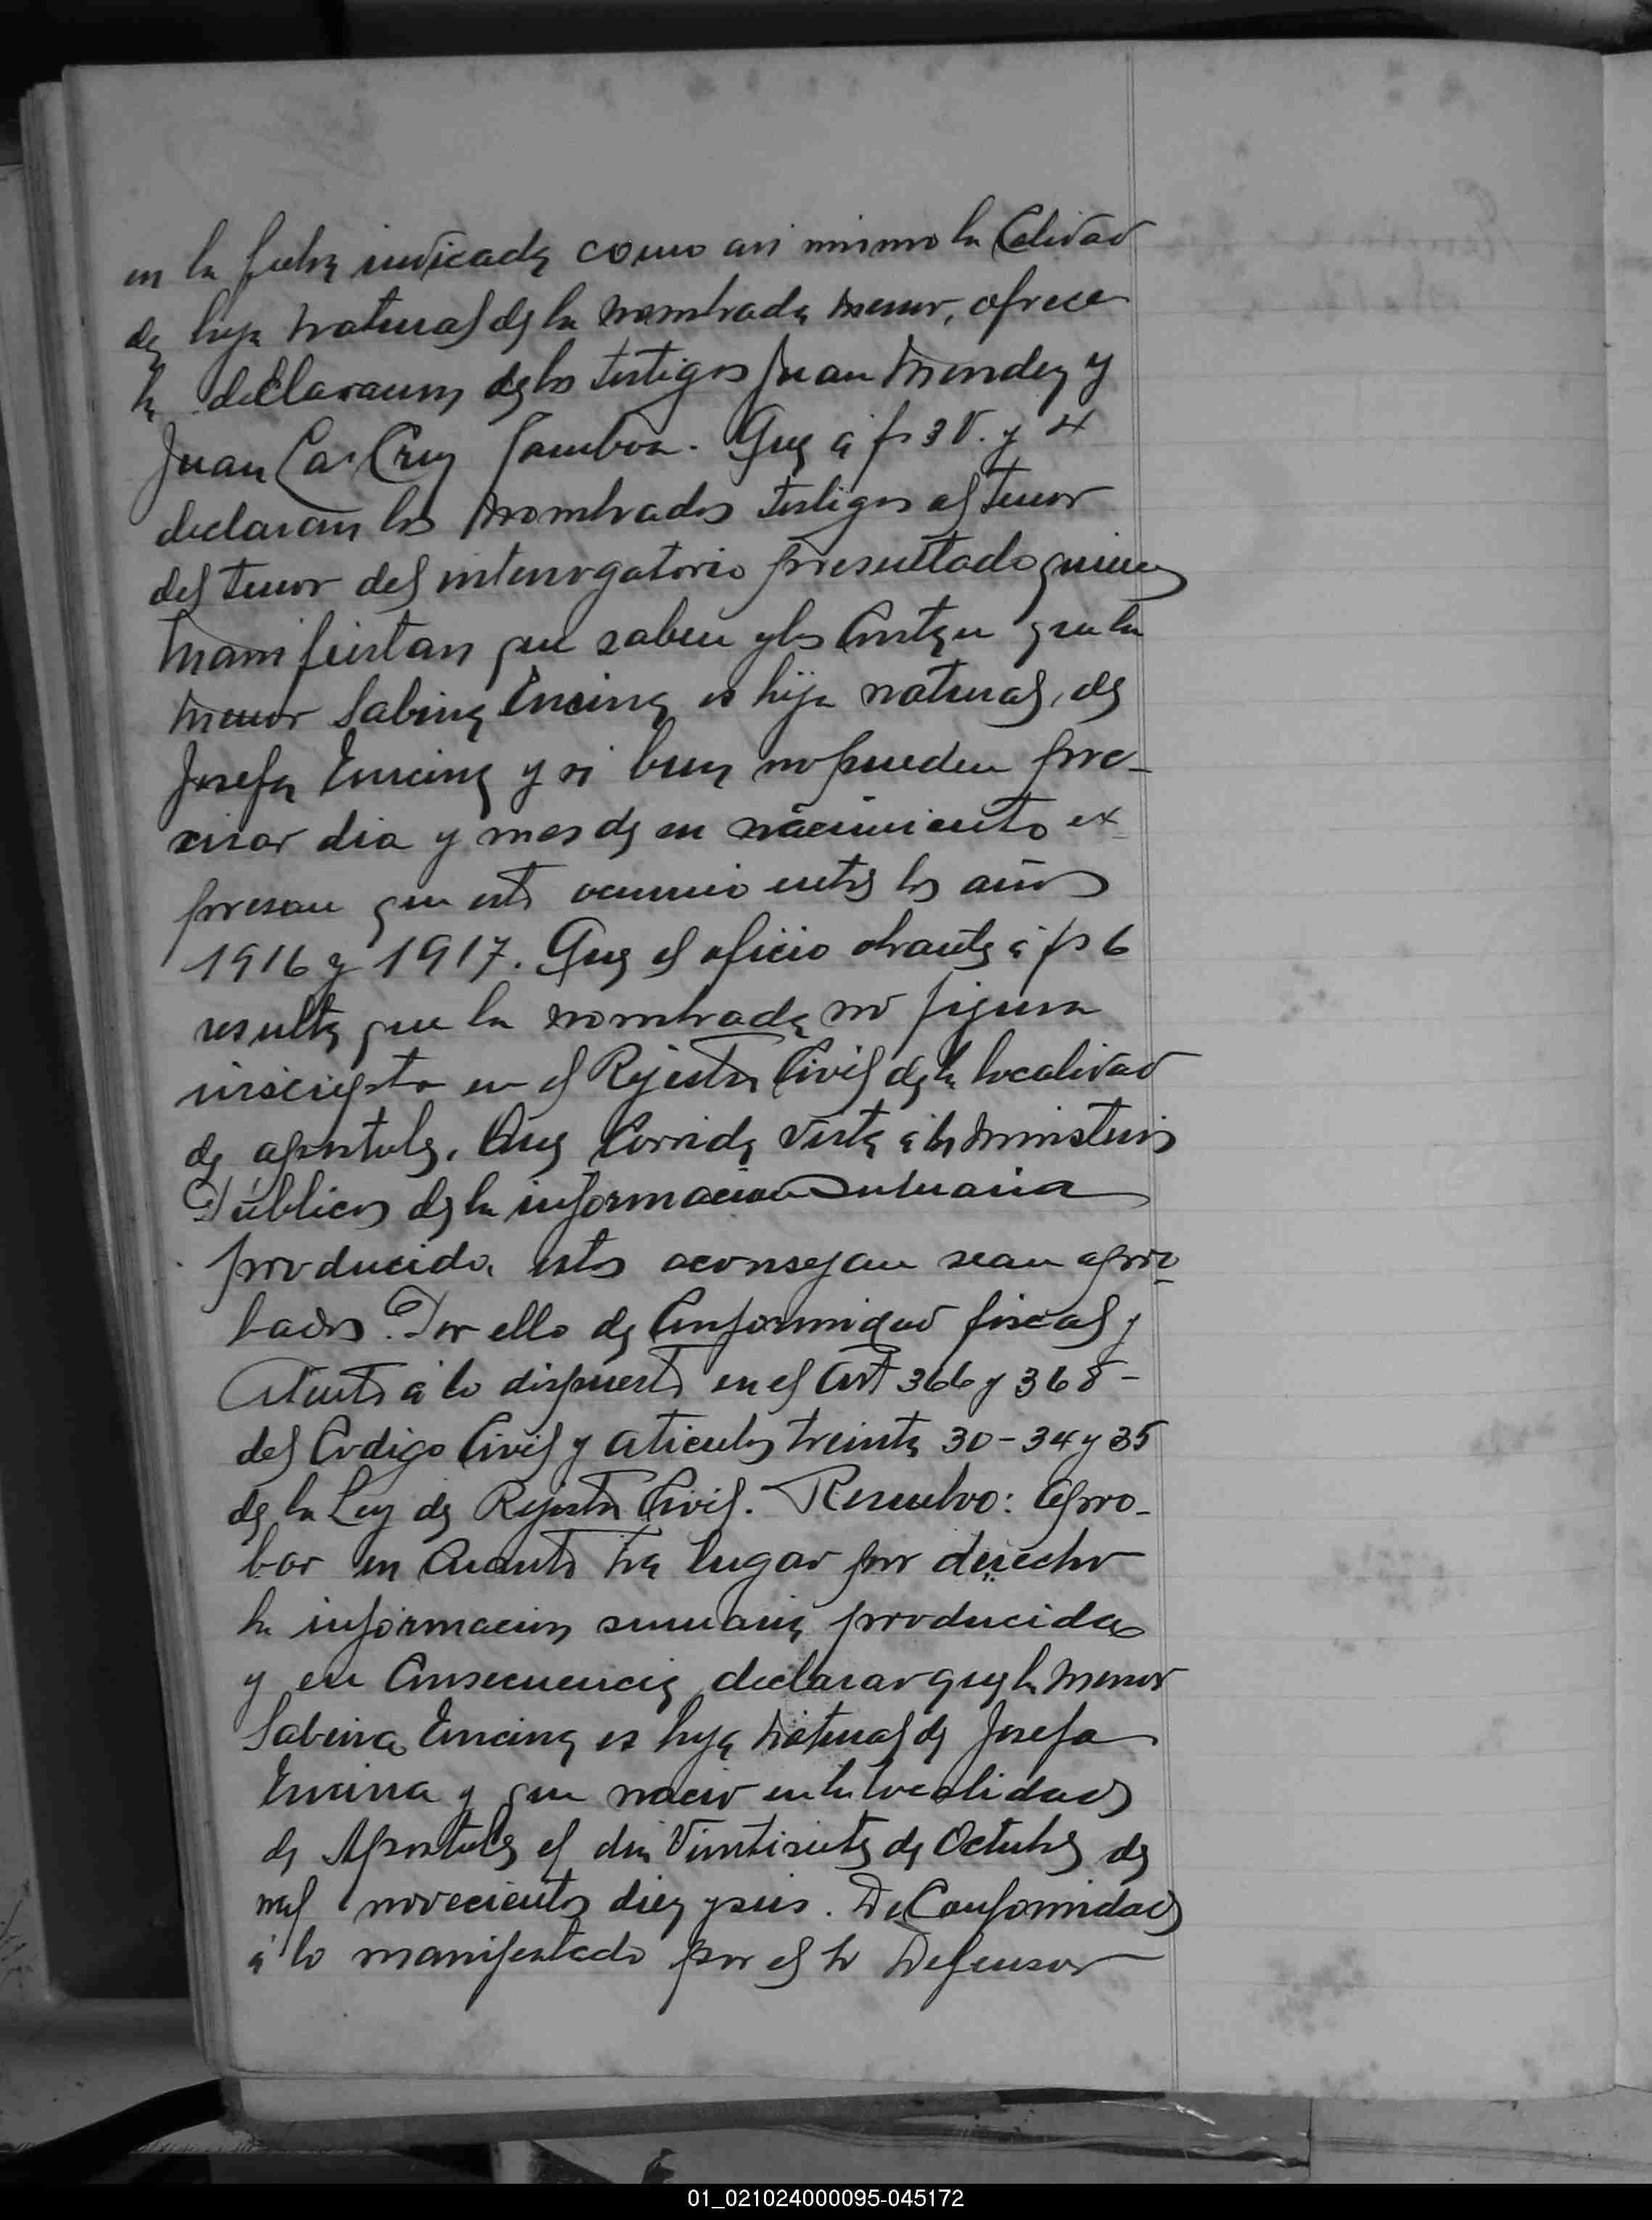 en la fecha indicada como asi mismo la Calidad
de hija natural de la nombrada menor, ofrece
la declaracion de los testigos Juan Mendez y
Juan La Cruz Gamboa. Que á fs 3 V. y 4
declaran los nombrados testigos al tenor
del tenor del interrogatorio presentado quienes
manifiestan que saben y les Consta que la
menor Sabina Encina es hija natural, de
Josefa Encina y si bien no pueden pre-
cisar dia y mes de su nacimiento ex-
presan que esto ocurrio entre los años
1916 y 1917. Que el oficio obrante á fs 6
resulta que la nombrada no figura
inscripta en el Rejistro Civil de la localidad
de apostoles. Que Corrida vista á los ministerios
Publicos de la informacion sumaria
producida, estos aconsejan sean apro-
bados. Por ello de Conformidad fiscal y
Atento á lo dispuesto en el Art 366 y 368 -
del Codigo Civil y aticulos treinta 30 - 34 y 35
de la Ley de Rejistro Civil. Resuelvo: Apro-
bar en Cuanto ha lugar por derecho
la informacion sumaria producida
y en Consecuencia declarar que la menor
Sabina Encina es hija natural de Josefa
Encina y que nacio en la localidad
de Apostoles el dia Veintisiete de Octubre de
mil novecientos diez y seis. De Conformidad
á lo manifestado por el Sr Defensor
01_021024000095-045172